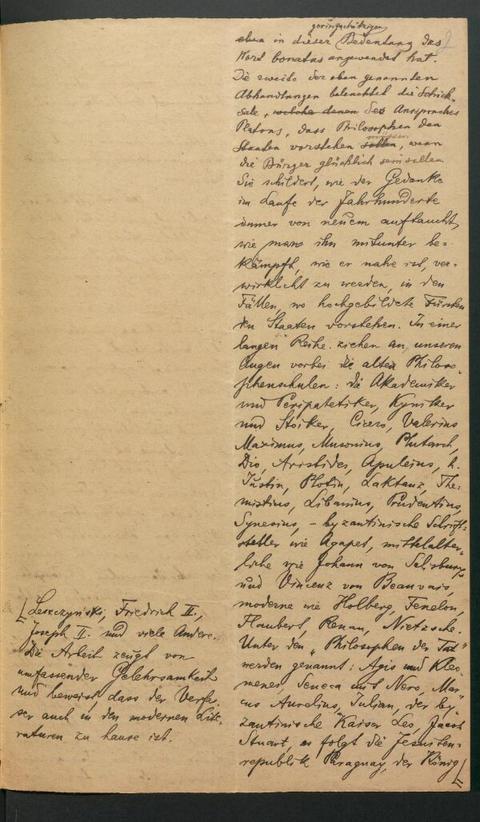 geringschätzigen
eben in dieser Bedeutung das
Wort bonatus angewendet hat.
Die zweite der eben genannten
Abhandlungen beleuchtet die Schick-
sale, welche denen des Anspruches
Platons, dass Philosophen den
müssen
Staaten vorstehen sollten, wenn
die Bürger glücklich sein sollen
Sie schildert, wie der Gedanke
im Laufe der Jahrhunderte
immer von neuem auftaucht,
wie man ihn mitunter be-
kämpft, wie er nahe ist, ver-
wirklicht zu werden, in den
Fällen, wo hochgebildete Fürsten
den Staaten vorstehen. In einer
langen Reihe ziehen an unseren
Augen vorbei die alten Philoso-
phenschulen: die Akademiker
und Peripatetiker, Kyniker
und Stoiker, Cicero, Valerius
Maximus, Musonius, Plutarch,
Dio, Aristides, Apuleius, h.
Justin, Plotin, Laktanz, The-
mistius, Libanius, Prudentius,
Synesius, – byzantinische Schrift-
steller wie Agapet, mittelalter-
liche wie Johann von Salisbury
und Vincenz von Beauvais,
moderne wie Holberg, Fenelon,
Flaubert, Renan, Nietzsche.
Unter den „Philosophen der Tat"
werden genannt: Agis und Kleo-
menes, Seneca mit Nero, Mar-
cus Aurelius, Julian, der by-
zantinische Kaiser Leo, Jacob
Stuart, es folgt die Jesuiten-
republik Paraguay, der König
[Leszczyński, Friedrich II.,
Joseph II. und viele Andere.
Die Arbeit zeugt von
umfassender Gelehrsamkeit
und beweist, dass der Verfas-
ser auch in den modernen Lite-
raturen zu hause ist.